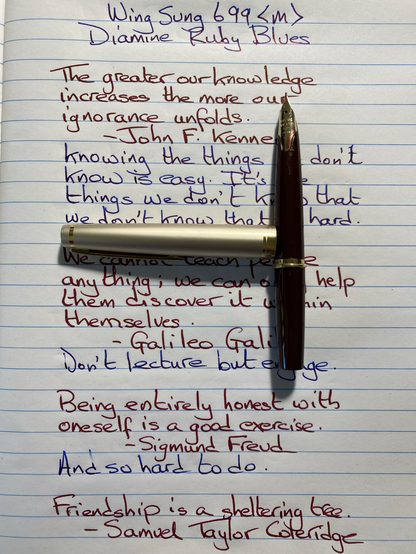 Wing Sung 699 <m>
Diamine Ruby Blues
The greater our knowledge
increases the more our
ignorance unfolds.
- John F. Kenne
knowing the things don't
know is easy. It's
things we don't k that
we don't know that hard.
We cannot teach
anything; we can help
them discover it within
themselves.
- Galileo Gali
Don't lecture but engage.
Being entirely honest with
oneself is a good exercise.
- Sigmund Freud
And so hard to do.
Friendship is a sheltering tree.
- Samuel Taylor Coleridge